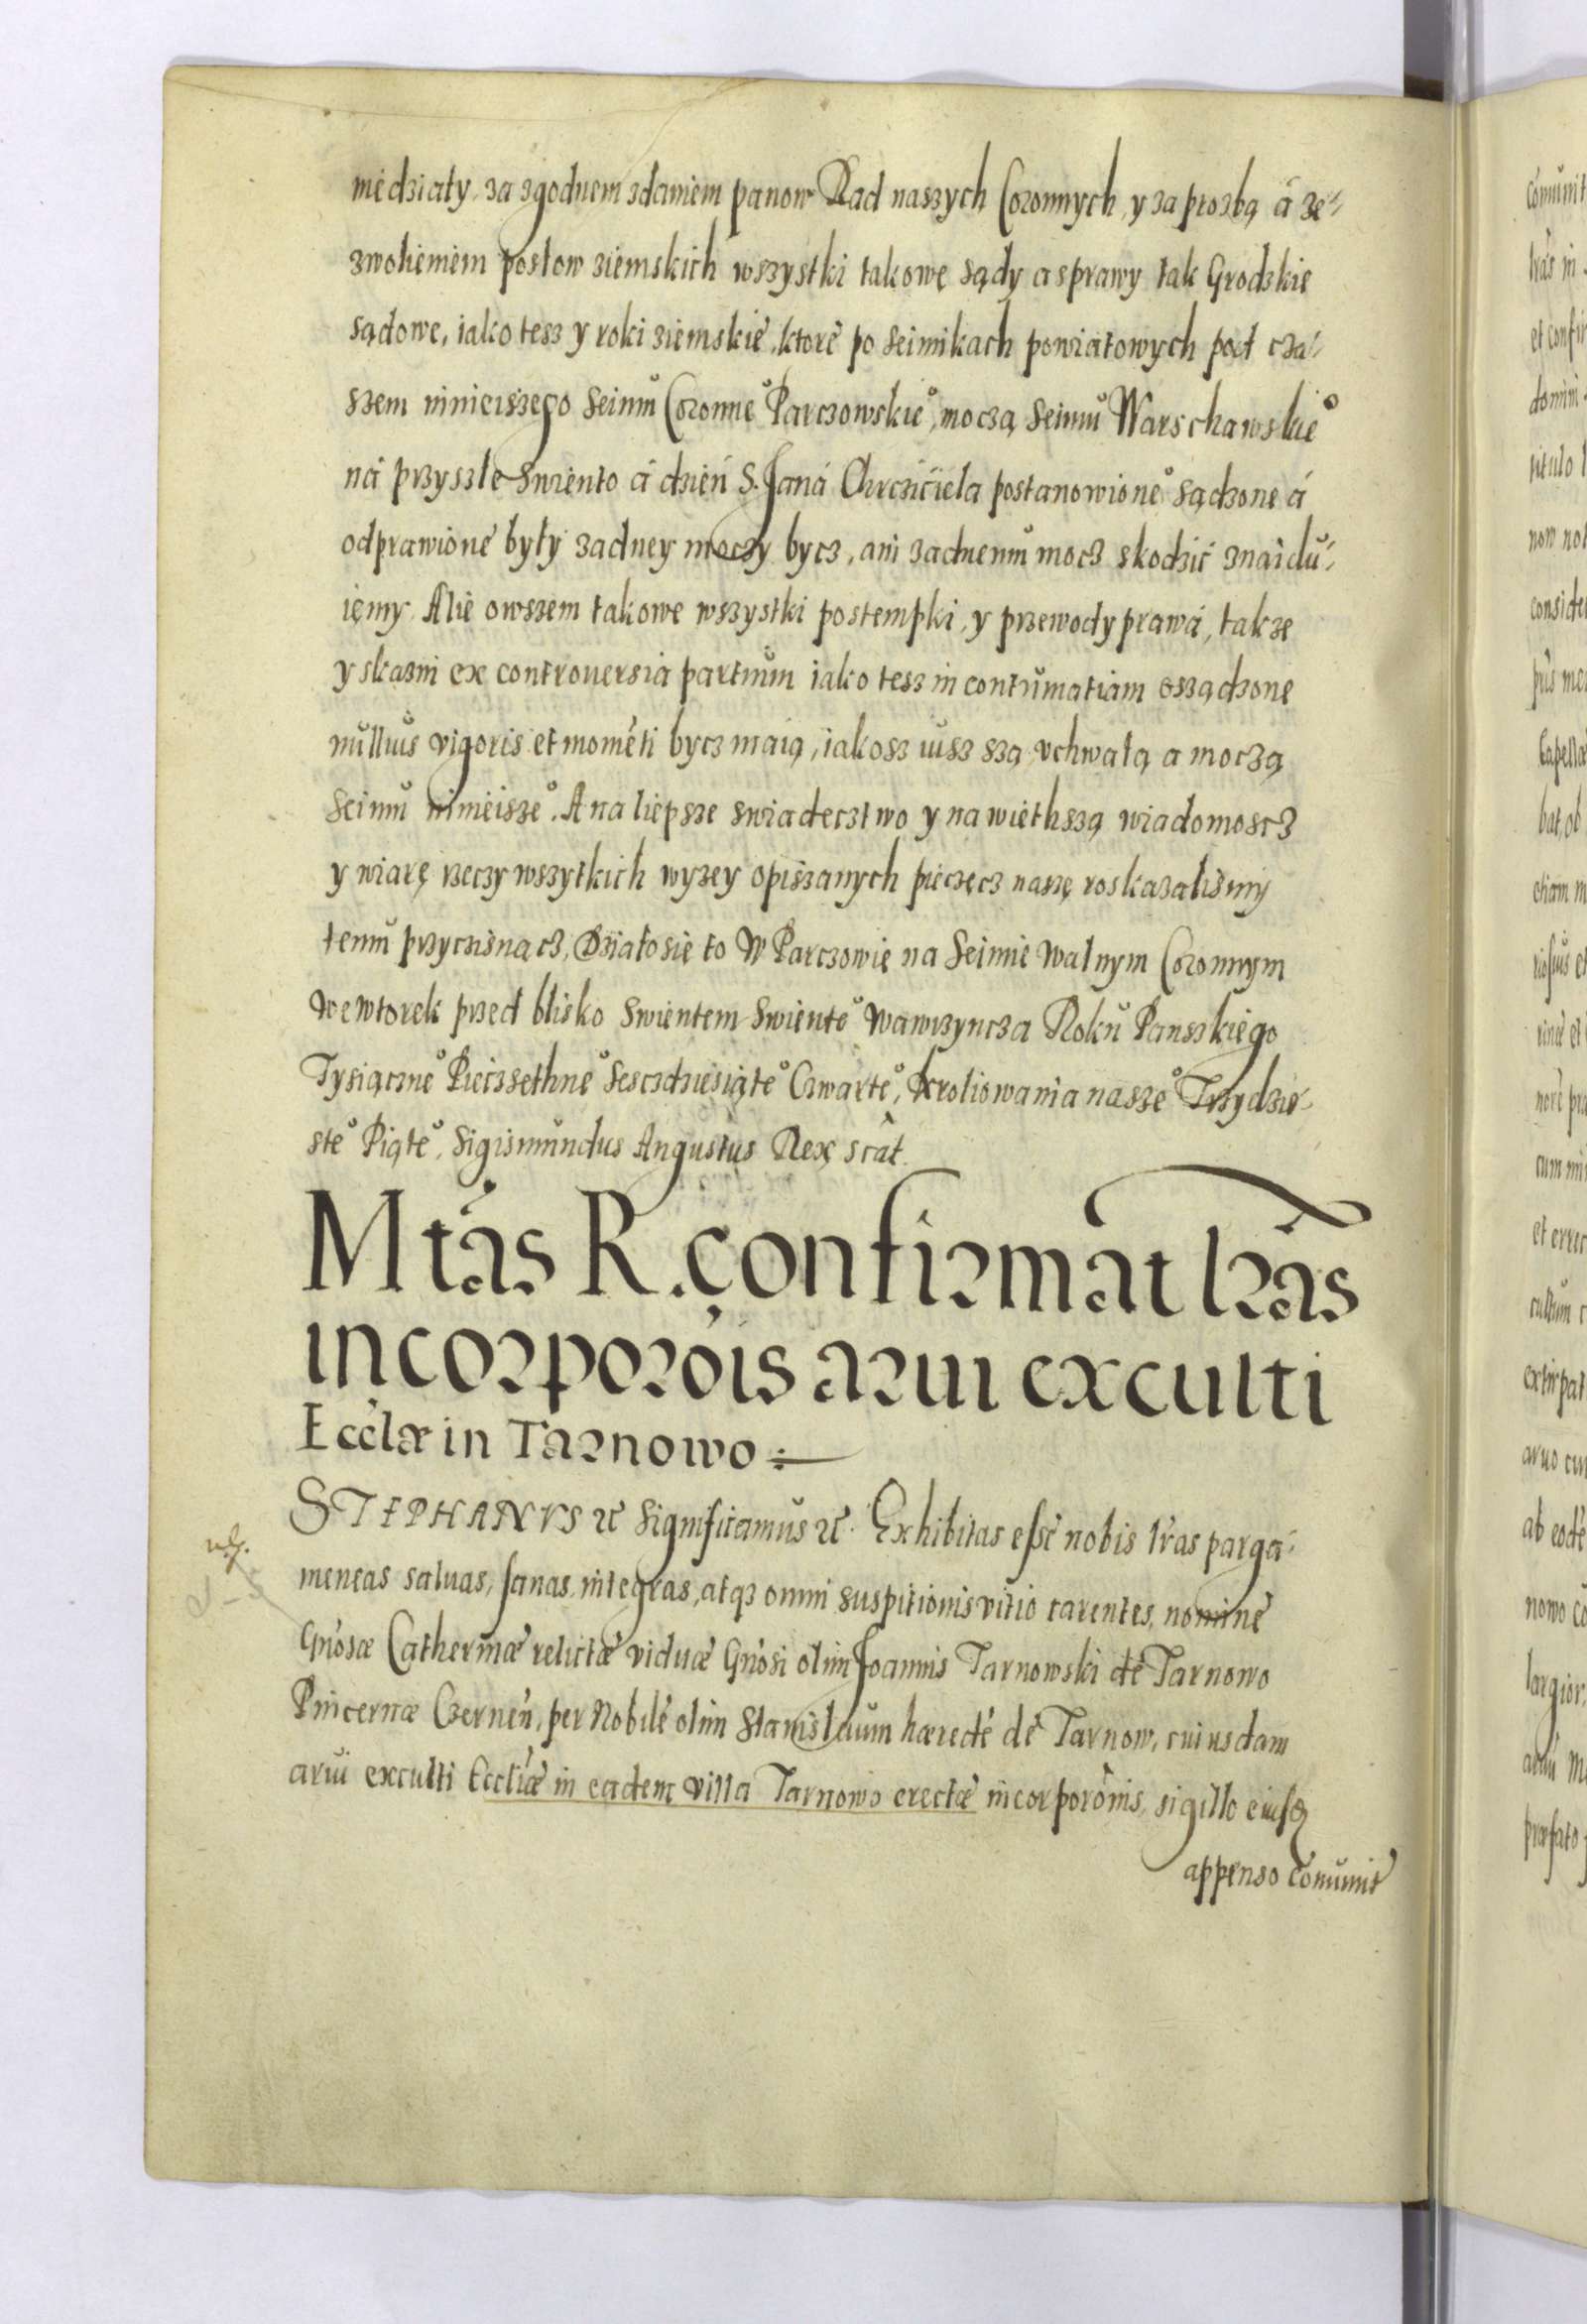 miedziały, za zgodnem zdaniem panow Rad naszych Coronnych, y za prozbą á ze-
zwolieniem posłow ziemskich wszystki takowe sądy a sprawy tak Grodzkie
sądowe, iako tesz y roki ziemskie, ktore po seimikach powiatowych pod cza-
szem ninieiszego Seimu Coronne° Parczowskie°, moczą Seimu Warschawskie°
ná przyszłe Swiento á dzień S. Janá Chrzciciela postanowione° sądzone á
odprawione były żadney moczy bycz, ani żadnemu mocz skodzić znaidu-
iemy. Alie owszem takowe wszystki postempki, y przewody prawá, takze
y skazni ex controuersia partium iako tesz in contumatiam osządzone
nullius vigoris et momēti bycz maią, iakosz iusz szą vchwałą a moczą
Seimu ninieisze°. A na liepsze swiadecztwo y na wiethszą wiadomoscz
y wiarę rzeczy wszytkich wyzey opiszanych pieczęcz naszę roskazalismy
temu przyczisnącz, Działo się to W Parczowie na Seimie Walnym Coronnym
We wtorek przed blisko Swientem Swiente° Wawrzyncza Roku Panszkiego
Tysiączne° Pieczsethne° Sesczdziesiąte° Czwarte°, Kroliowania nasze° Trzydzie-
ste° Piąte°. Sigismundus Augustus Rex scāt.
Mtās R. confirmat lrās
incorporōis arui exculti
Eccłæ in Tarnowo
STEPHANVS ꝛc Significamus ꝛc. Exhibitas esse nobis lrās parga-
meneas saluas, sanas, integras, atqꝫ omni suspitionis vitio carentes, nomine
Gnōsæ Catherinæ relictæ viduæ Gnōsi olim Joannis Tarnowski de Tarnowo
Pincernæ Czernēn, per Nobilē olim Stanislaum hæredē de Tarnow, cuiusdam
arui exculti Eccliæ in eadem villa Tarnowo erectæ incorporōnis, sigillo eiusd
appenso comunit